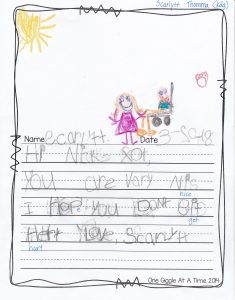 Scarlytt Thomma (kdg)
Name Scarlytt Date
Hi
You are Vary Nis
nice
I Hope you Dont Git
get
Hort Love, Scarlytt
hurt
One Giggle At A Time 2014